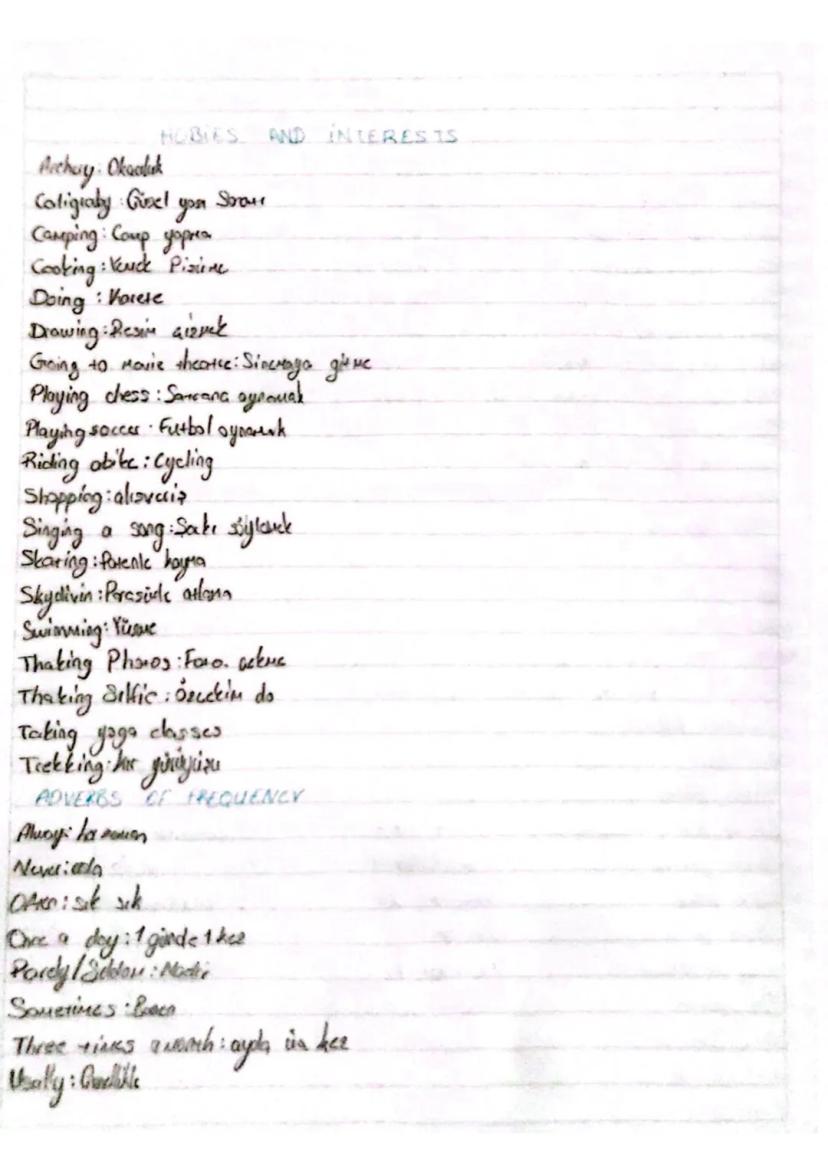 HOBIES AND İNTERESTS
Archery: Okçuluk
Caligraby: Güzel yazı Sanatı
Camping: Camp yapma
Cooking: Yemek Pişirme
Doing : Karete
Drawing: Resim çizmek
Going to movie theatre: Sinemaya gitme
Playing chess: Satranç oynamak
Playing soccer: Futbol oynamak
Riding a bike: Cycling
Shopping: alışveriş
Singing a song: Şarkı söylemek
Skating: Patenle kayma
Skydivin: Paraşütle atlama
Swimming: Yüzme
Thaking Photos: Foto. çekme
Thaking Selfie: Özçekim
Taking yoga classes
Trekking: yürüyüşü
ADVERBS OF FREQUENCY
Always: her zaman
Never: asla
Often: sık sık
Once a day: 1 günde 1 kez
Seldom: Nadir
Sometimes: Bazen
Three times a month: ayda üç kez
Usally: Genellikle